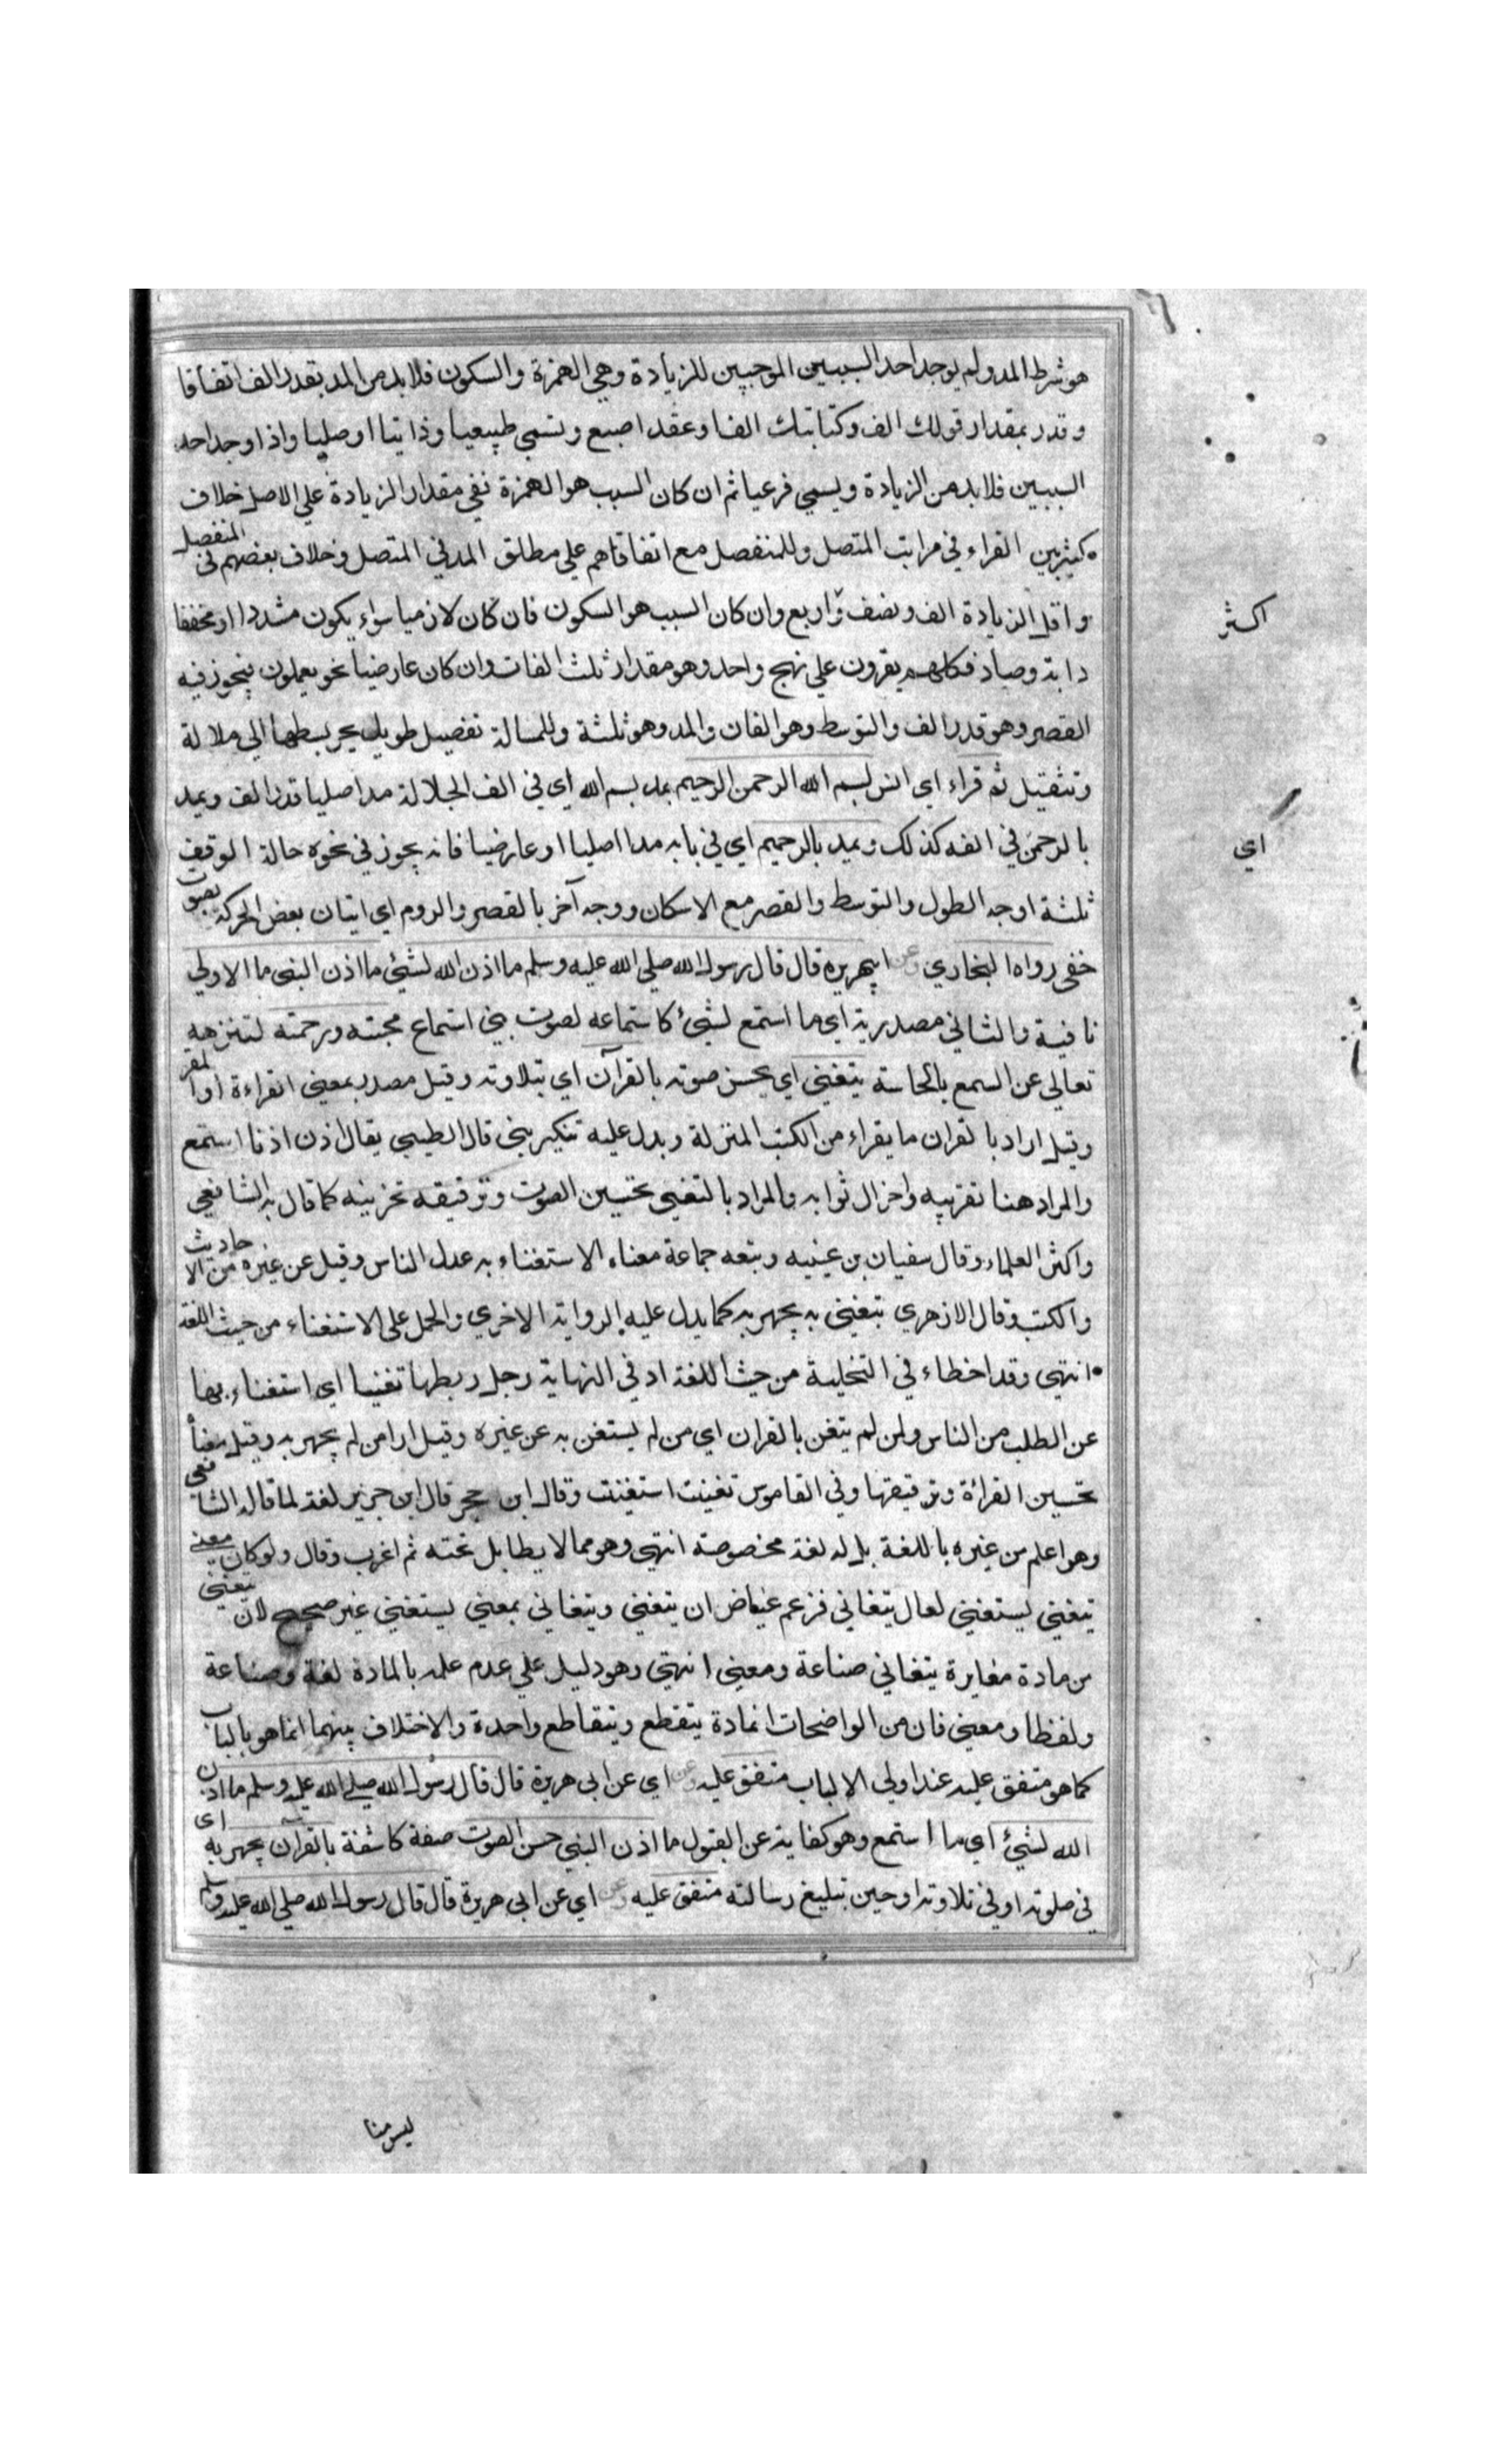 هو شرط المد ولم يوجد احد السببين الموجبين للزيادة وهي الهمزة والسكون فلا بد من المد بقدر الف اتفاقا
وقدر بمقدار قولك الف وكتابتك الفا وعقد اصبع وتسمى طبيعيا وذاتيا او صليا واذا وجد احد
السببين فلا بد من الزيادة ويسمي فرعيا ثم ان كان السبب هو الهمزة نفي مقدار الزيادة علي الاصل خلاف
كثيربين القراء في مراتب المتصل وللمنفصل مع اتفاقاهم علي مطلق المد في المتصل وخلاف بعضهم في المنفصل
واقل الزيادة الف ونصف واربع وان كان السبب هو السكون فان كان لازميا سواء يكون مشددا او مخففا
دابة وصاد فكلهم يقرون علي نهج واحد وهو مقدار ثلث الفات وان كان عارضيا نحو يعملون يجوز فيه
القصر وهو قدر الف والتوسط وهو الفان والمد وهو ثلثة وللمسالة تفصيل طويل يجر بسطها الي ملالة
وتثقيل ثم قراء اي انس بسم الله الرحمن الرحيم يمد بسم الله اي في الف الجلالة مدا صليا قدر الف ويمد
بالرحمن في الفه كذلك ويمد بالرحيم اي في يابه مدا اصليا او عارضيا فانه يجوز في نحوه حالة الوقف
ثلثة اوجه الطول والتوسط والقصر مع الاسكان ووجه آخر بالقصر والروم اي اتيان بعض الحركة بصوت
خفي رواه البخاري وعن ابيهريره قال قال رسول الله صلي الله عليه وسلم ما اذن الله لشئي ما اذن النبي ما الاولي
نافية والثاني مصدرية اي ما استمع لشئ كاستماعه لصوت بني استماع محبته ورحمته لتنزهه
تعالي عن السمع بالحاسة يتغني اي يحسن صوته بالقرآن اي بتلاوته وقيل مصدر بمعني القراءة او المقر
وقيل اراد بالقران ما يقراء من الكتب المنزلة ويدل عليه تنكير بني قال الطيبي يقال اذن اذنا استمع
والمراد هنا تقريبه واجزال ثوابه والمراد بالتغني تحسين الصوت وترقيقه تحزينه كما قال به الشافعي
واكثر العلماء وقال سفيان بن عينيه وتبعه جماعة معناه الاستغناء به عدل الناس وقيل عن غيره من الاحاديث
والكتب وقال الازهري تبغني به يجهر به كما يدل عليه الرواية الاخري والحمل علي الاستغناء من حيث اللغة
انتهي وقد اخطاء في التخلية من حيث اللغة اذ في النهاية رجل ربطها تغنيا اي استغناء بها
عن الطلب من الناس ولمن لم يتغن بالقران اي من لم يستغن به عن غيره وقيل ارا من لم يجهر به وقيل معناه
تحسين القرائة وترقيقها وفي القاموس تغنيت استغنت وقال ابن حجر قال ابن جرير لغة لما قاله الشافعي
وهو اعلم من غيره باللغة بل له لغة مخصوصة انتهي وهو مما لا يطابل تحته ثم اغرب وقال ولو كان معني
يتغني يستغني لعال يتغاني فزعم عياض ان يتغني ويتغاني بمعني يستغني غير صحيح لان يتغني
من مادة مغايرة يتغاني صناعة ومعني انتهي وهو دليل علي عدم علمه بالمادة لغة وصناعة
ولفظا ومعني فان من الواضحات ان مادة يتقطع ويتقاطع واحدة والاختلاف بينهما انما هو بالباب
كما هو متفق عليه عند اولي الالباب متفق عليه وعن اي عن ابي هريرة قال قال رسول الله صلي الله عليه وسلم ما اذن
الله لشئ اي ما استمع وهو كفاية عن القبول ما اذن النبي حسن الصوت صفة كاشفة بالقرآن يجهر به اي
في صلوته او في تلاوته او حين تبليغ رسالته متفق عليه وعن اي عن ابي هريرة قال قال رسول الله صلي الله عليه وسلم
اكثر
اي
ليس منا